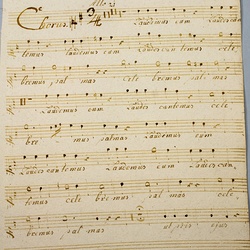 Chorus. Laudemus cum Laudes can
temus Laudemus cum Laudes can temus cele
bremus psal mos cele bremus psal mos
Laudemus cum Laudes cantemus cele
bre mus psalmos Laudemus cum
Laudes cantemus Laudemus cum Laudes can
temus cele bre mus psal mos cele
bremus psal mos